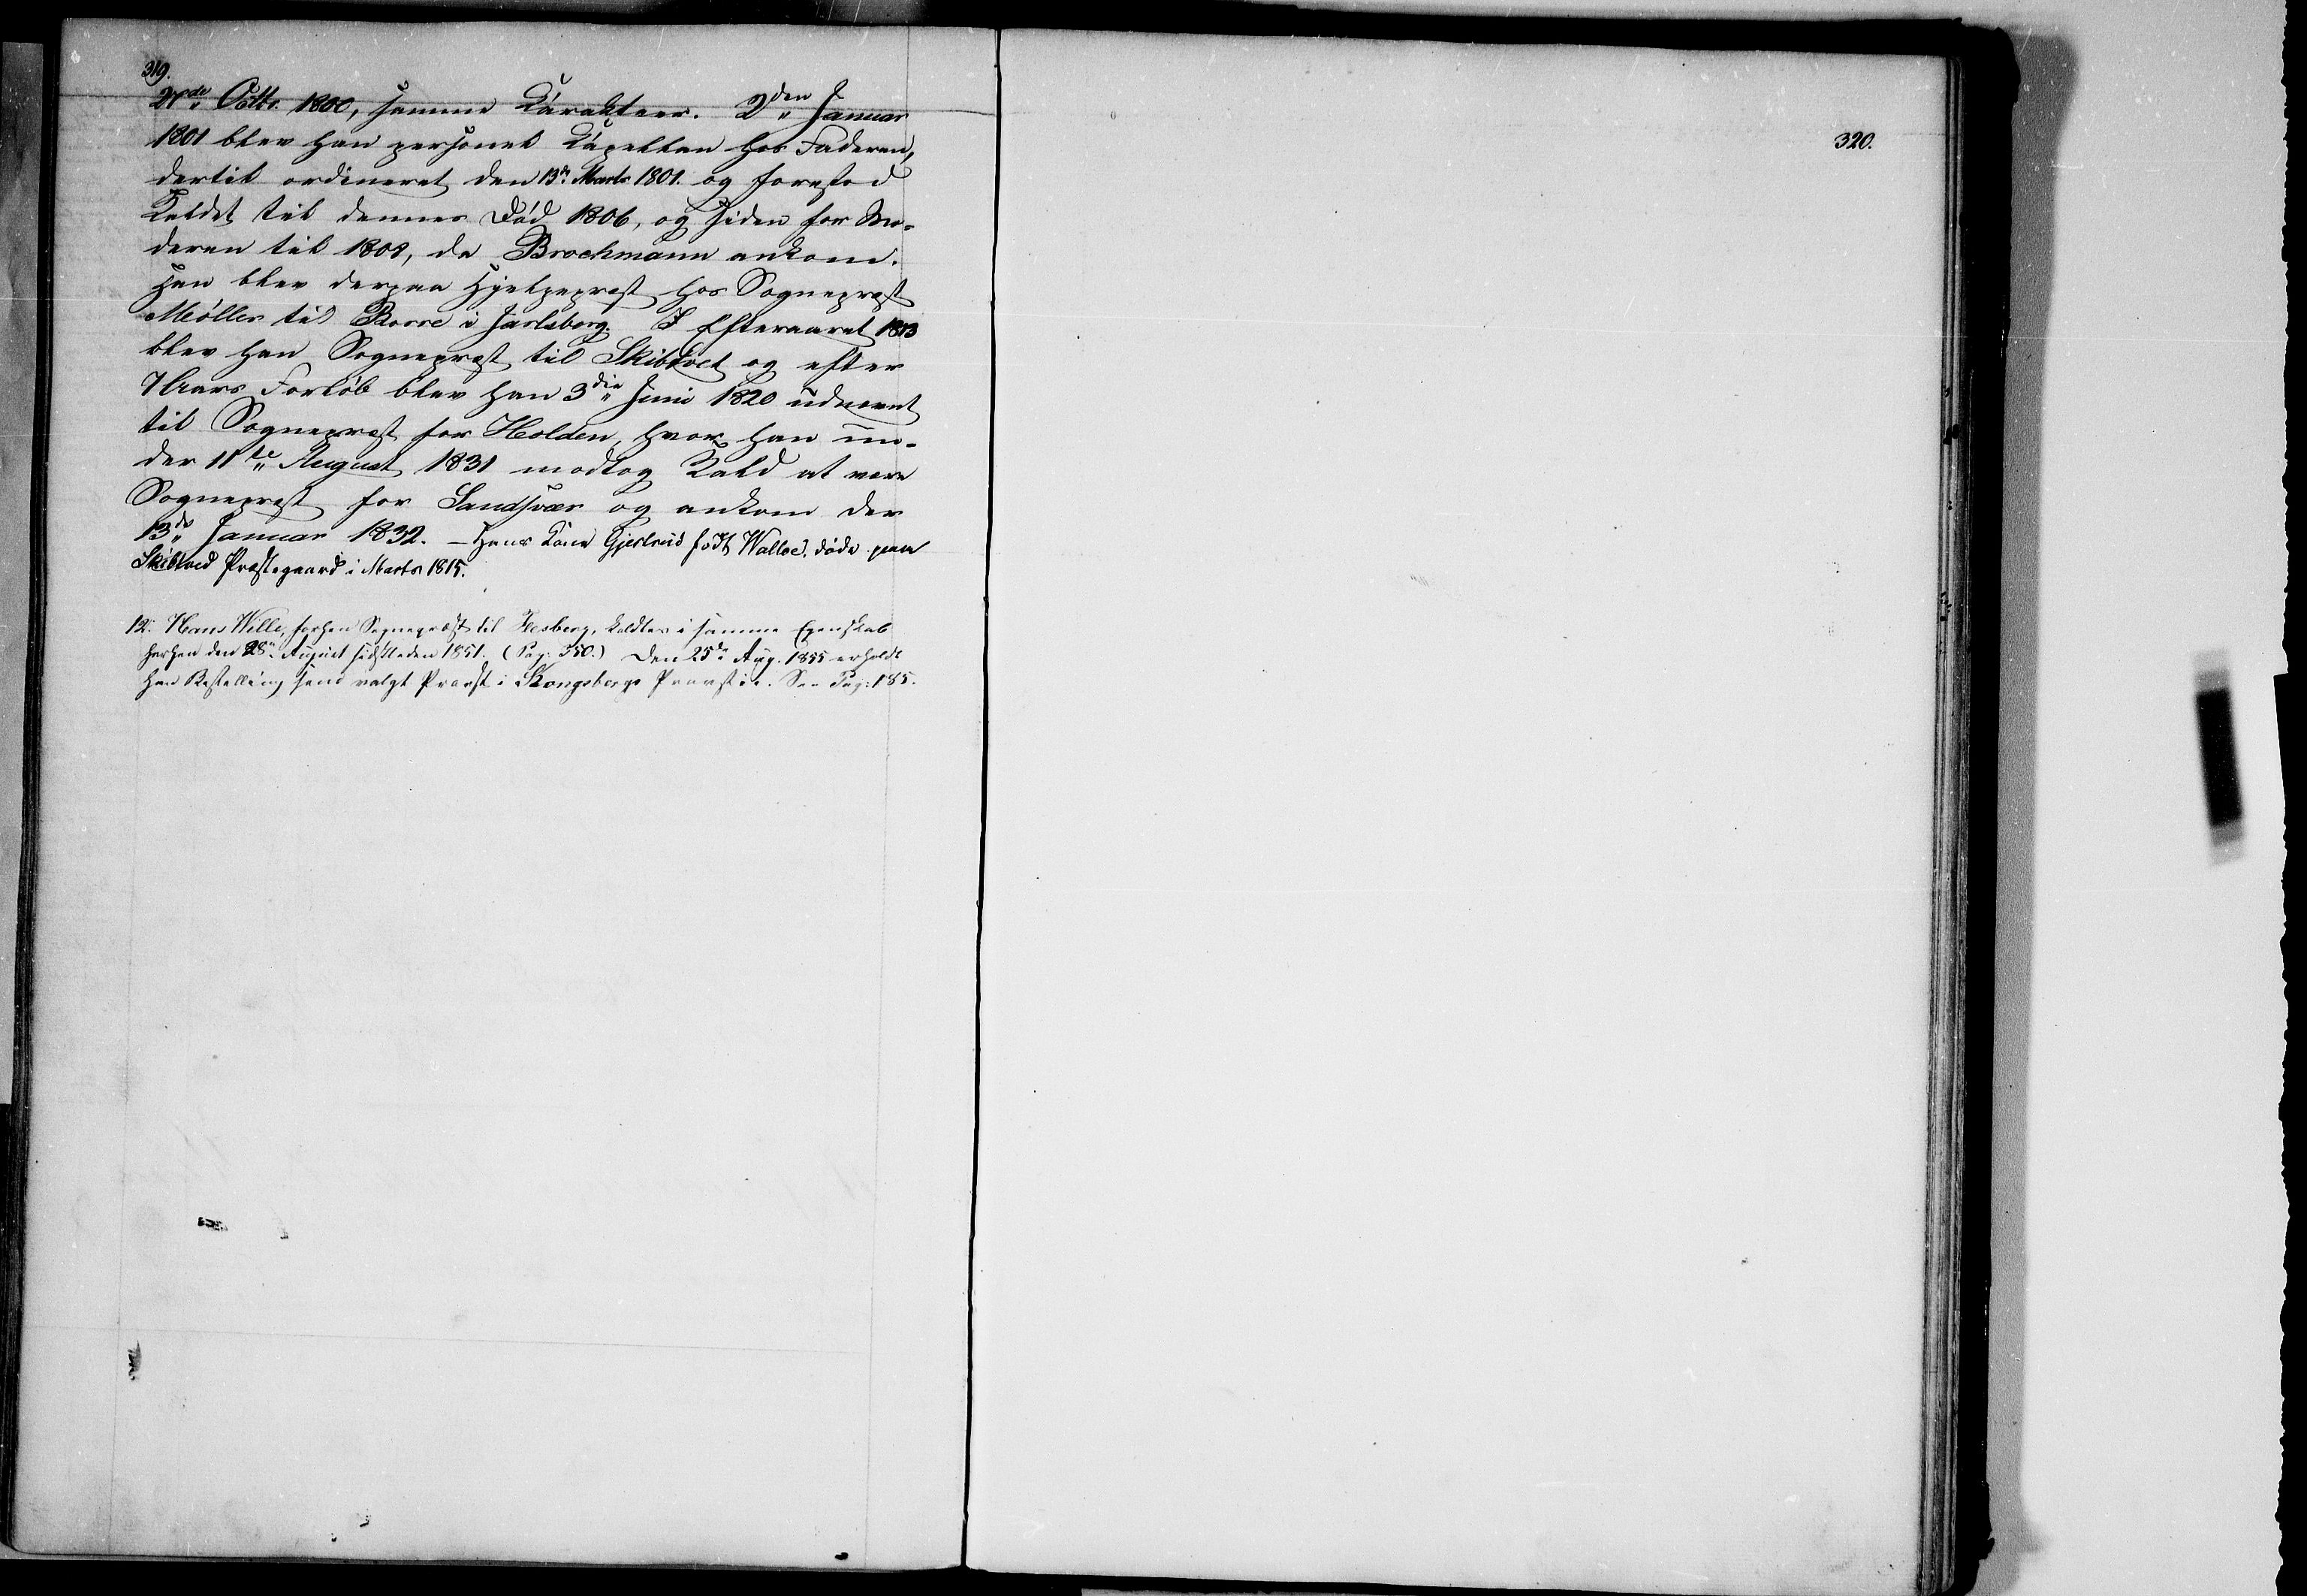 319.
21de Octbr. 1800, samme Karakteer. 2den Januar
1801 blev han personel Kapellan hos Faderen,
dertil ordineret den 13de Marts 1801. og forestod
Kaldet til dennes Død 1806, og siden for Mo-
deren til 1808, da Brochmann ankom.
Han blev derpaa Hjelpeprest hos Sogneprest
Møller til Borre i Jarlsberg. I Efteraaret 1813
blev han Sogneprest til Skibtvet og efter
7 Aars Forløb blev han 3die Juni 1820 udnevnt
til Sogneprest for Holden, hvor han un-
der 11te August 1831 modtog Kald at være
Sogneprest for Sandsvær og ankom der
13de Januar 1832. – Hans Kone Gjertrud født Walløe, døde paa
Skibtved Præstegaard i Marts 1815.
12. Hans Wille, forhen Sogneprest til Flesberg, kaldtes i samme Egenskab
herhen den 28de August sidstleden 1851. (Pag: 350.) Den 25de Aug. 1855 erholdt
han Bestalling som valgt Provst i Kongsbergs Provstie. See Pag: 185.
320.